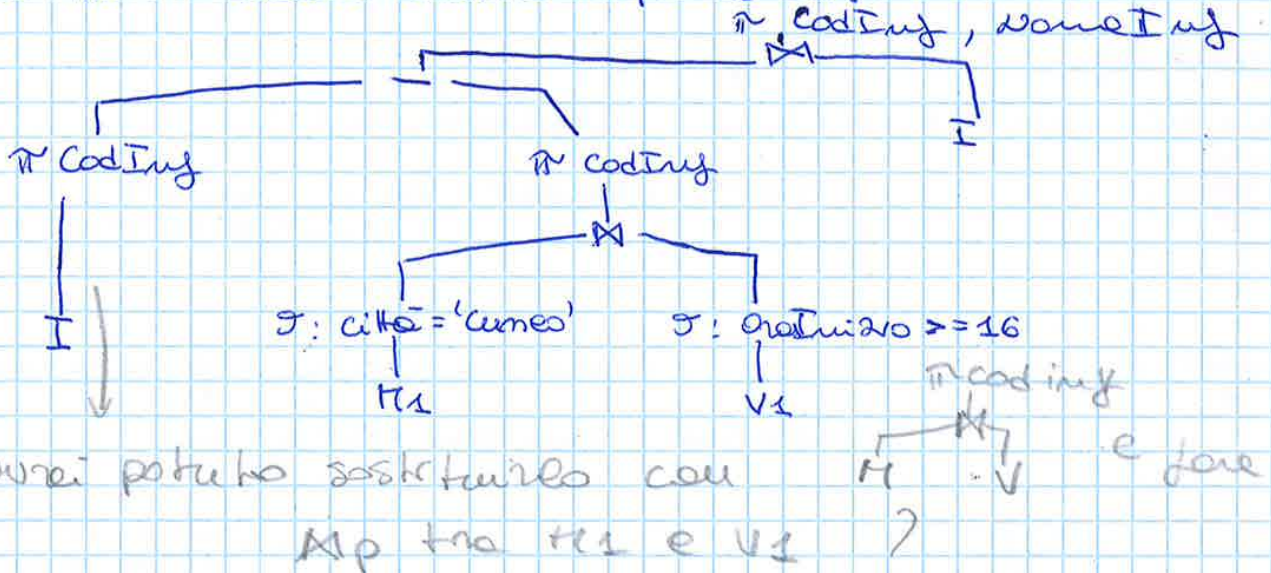 π CodInf, NomeInf
⋈
—
I
π CodInf
π CodInf
⋈
I
σ: città = 'Cuneo'
σ: OraInizio >= 16
M1
V1
π codinf
⋈
potuto sostituirlo con
M
V
e fare
⋈p tra M1 e V1 ?